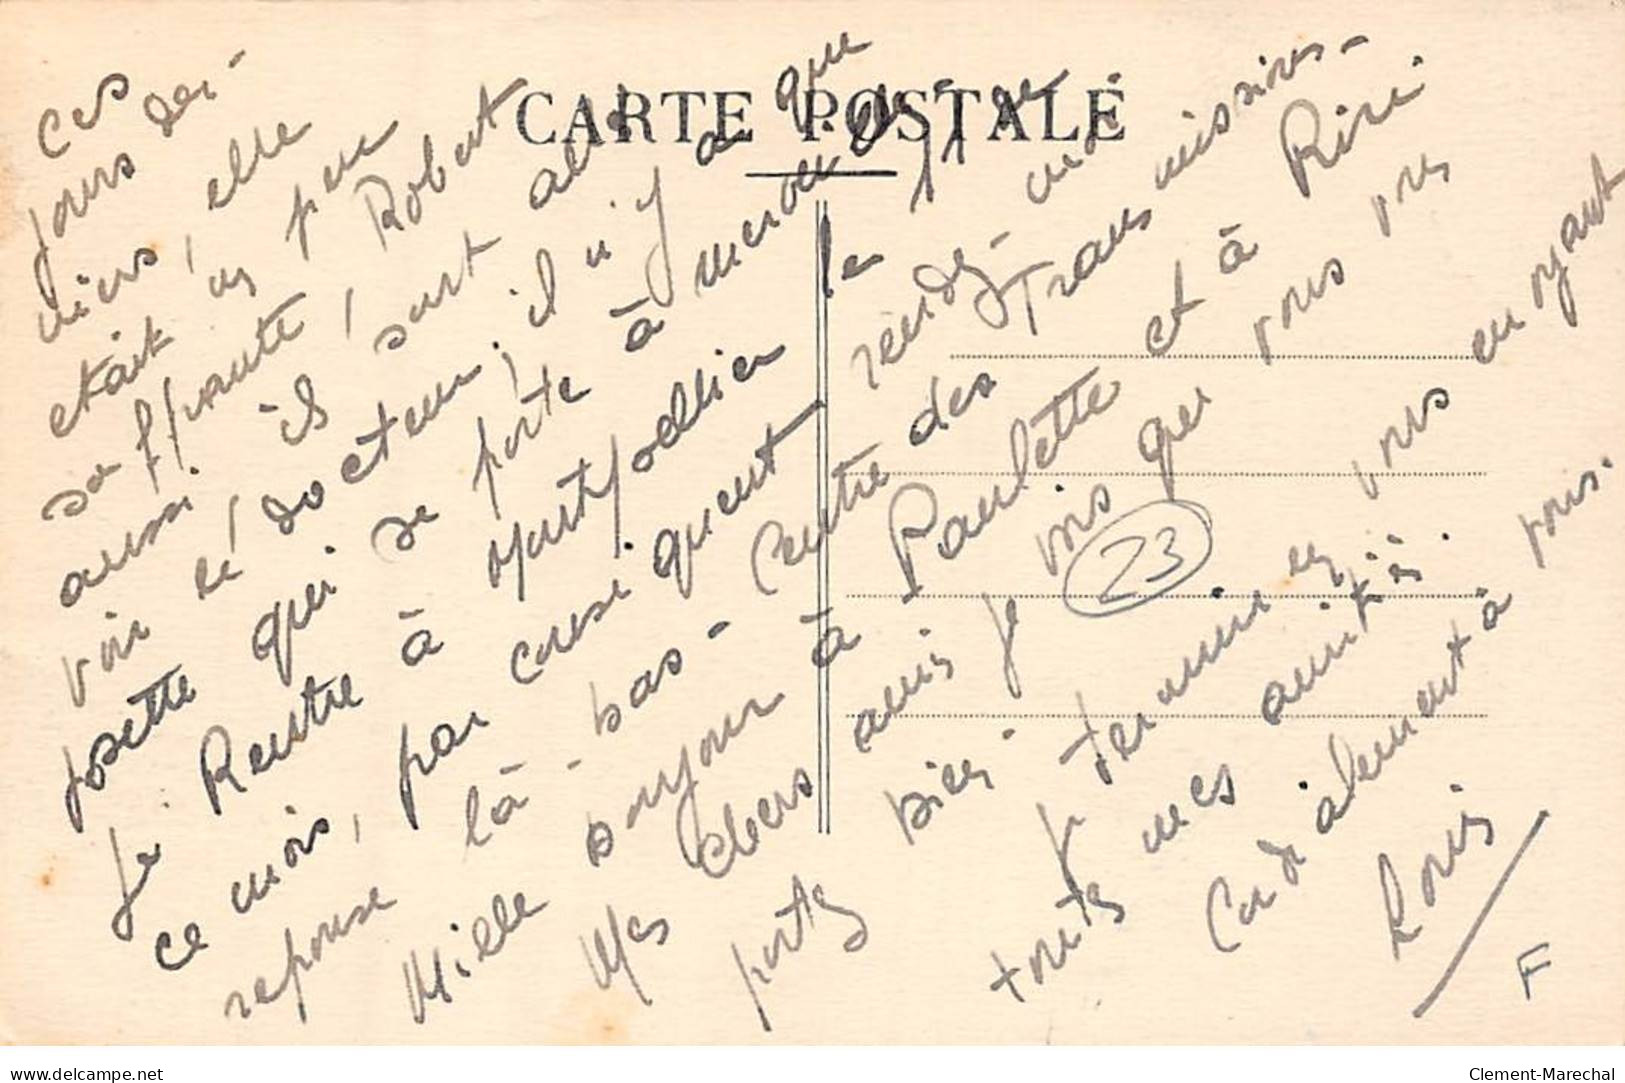 CARTE POSTALE
ces
jours der-
niers, elle
était un peu
souffrante, Robert
aussi ils sont allés
voir le docteur, il n'y a que
Josette qui se porte à merveille.
Je Rentre à Montpellier le 11 de
ce mois, par conséquent rendez-
reponse là-bas - Centre des Transmissions -
Mille bonjour à Paulette et à Riri.
Mes chers amis je vois que vous vous
portez bien.
Je termine en vous envoyant
toutes mes amitiés.
Cordialement à vous.
Louis
23
F
delcampe.net
Clement-Marechal